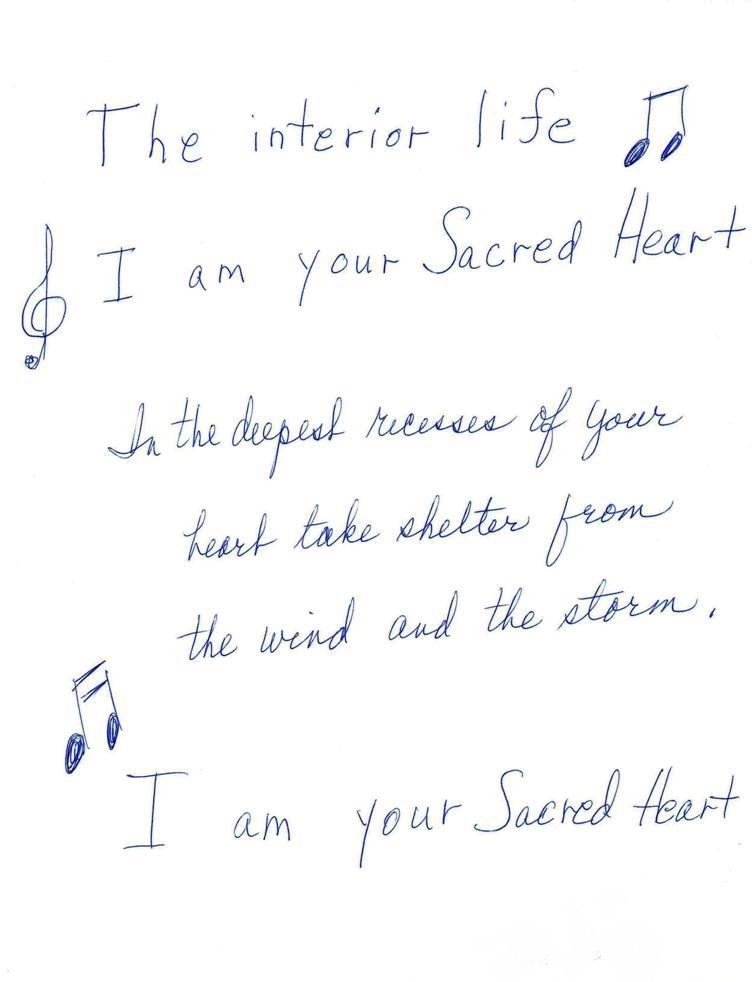 The interior life
I am your Sacred Heart
In the deepest recesses of your
heart take shelter from
the wind and the storm.
I am your Sacred Heart